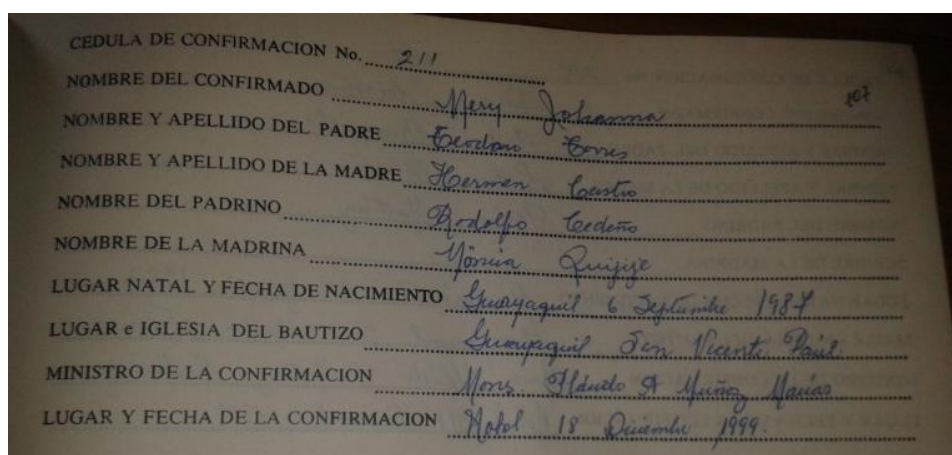 CEDULA DE CONFIRMACION No. 211
NOMBRE DEL CONFIRMADO Mery Johanna
107
NOMBRE Y APELLIDO DEL PADRE Teodoro Torres
NOMBRE Y APELLIDO DE LA MADRE Hermen Castro
NOMBRE DEL PADRINO Rodolfo Cedeño
NOMBRE DE LA MADRINA Mónica Quijije
LUGAR NATAL Y FECHA DE NACIMIENTO Guayaquil 6 Septiembre 1987
LUGAR e IGLESIA DEL BAUTIZO Guayaquil San Vicente Paúl
MINISTRO DE LA CONFIRMACION Mons A Muñoz Macías
LUGAR Y FECHA DE LA CONFIRMACION 18 Diciembre 1999.